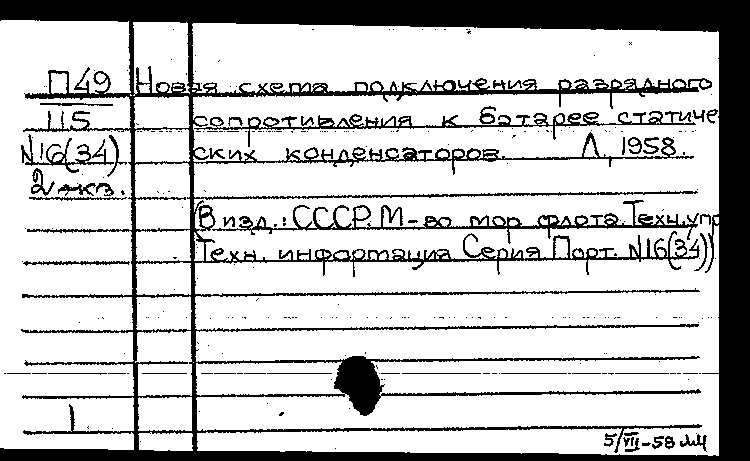 П49 Новая схема подключения разрядного
115 сопротивления к батарее статиче-
N16(34) ских конденсаторов. Л., 1958.
2 экз.
(В изд.: СССР. М-во мор. флота. Техн. упр.
Техн. информация Серия Порт. N16(34))
1
5/VII-58